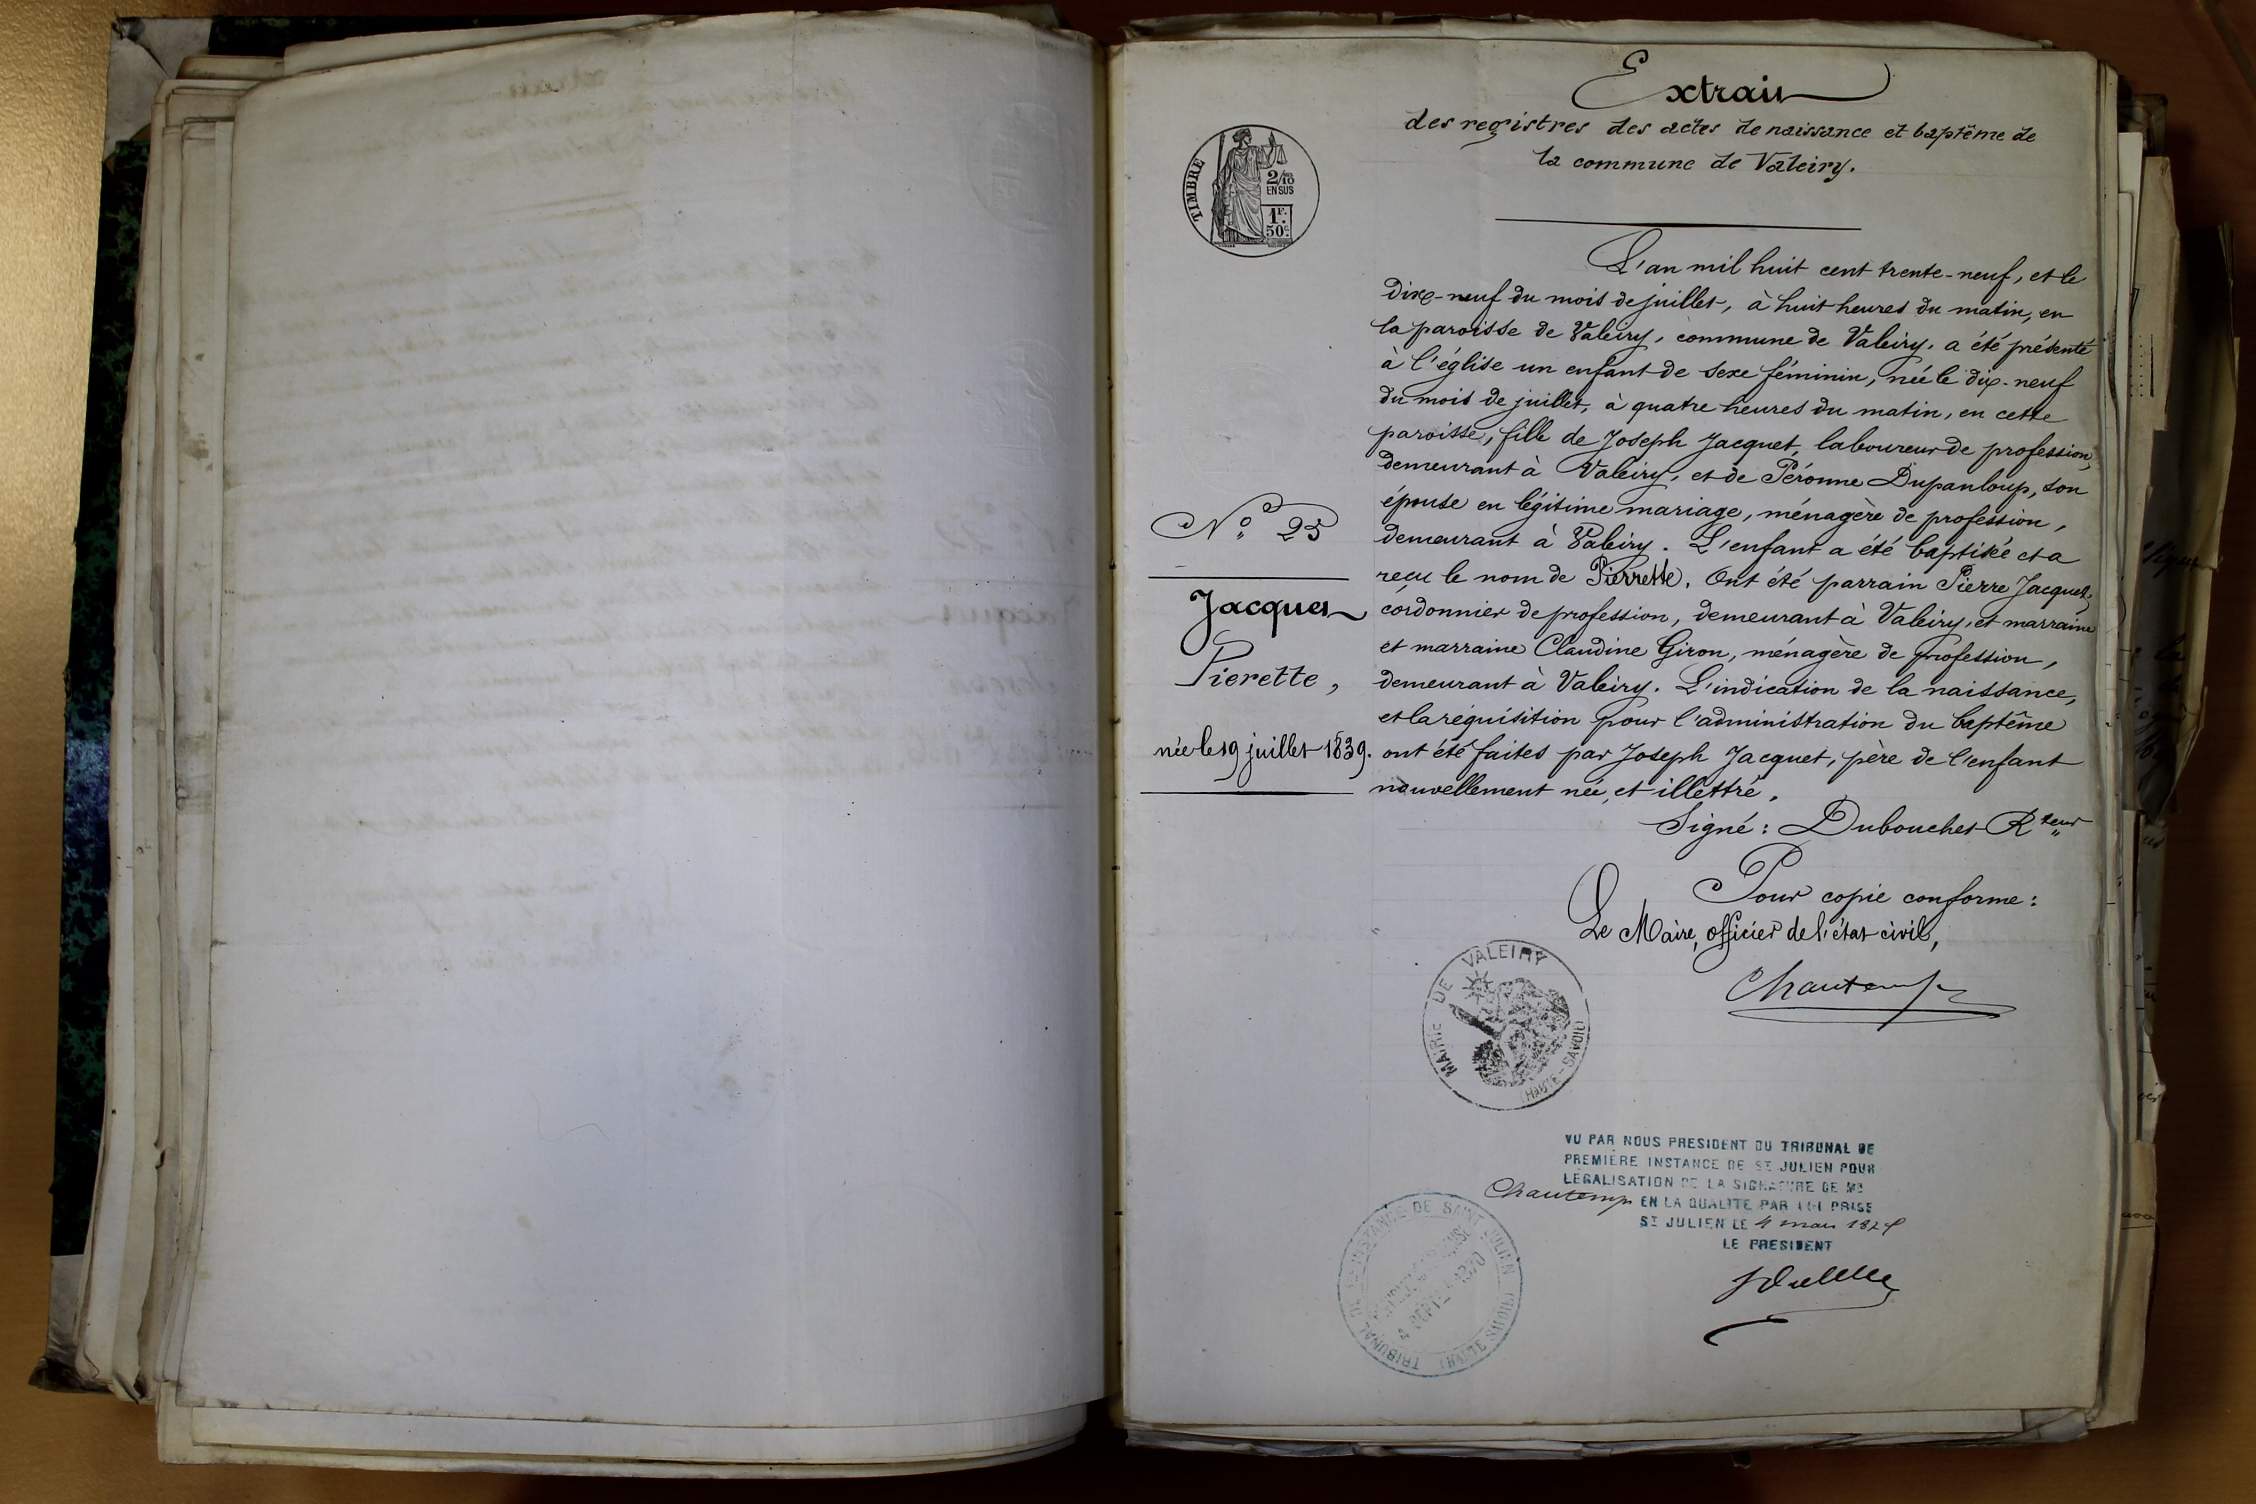 Extrait
des registres des actes de naissance et baptême de
la commune de Valeiry.
TIMBRE
2/10
EN SUS
1F.
50c.
L'an mil huit cent trente-neuf, et le
dix-neuf du mois de juillet, à huit heures du matin, en
la paroisse de Valeiry, commune de Valeiry, a été présenté
à l'église un enfant de sexe féminin, née le dix-neuf
du mois de juillet, à quatre heures du matin, en cette
paroisse, fille de Joseph Jacquet, laboureur de profession,
demeurant à Valeiry, et de Péronne Dupanloup, son
épouse en légitime mariage, ménagère de profession,
demeurant à Valeiry. L'enfant a été baptisé et a
reçu le nom de Pierrette. Ont été parrain Pierre Jacquet,
cordonnier de profession, demeurant à Valeiry, et marraine
et marraine Claudine Giron, ménagère de profession,
demeurant à Valeiry. L'indication de la naissance,
et la réquisition pour l'administration du baptême
ont été faites par Joseph Jacquet, père de l'enfant
nouvellement née, et illettré.
Signé: Dubouchet Rteur
No 25
Jacquet
Pierette,
née le 19 juillet 1839.
Pour copie conforme:
Le Maire, officier de l'état civil,
Chautemps
MAIRIE DE VALEIRY
(HAUTE-SAVOIE)
VU PAR NOUS PRESIDENT DU TRIBUNAL DE
PREMIÈRE INSTANCE DE ST JULIEN POUR
LÉGALISATION DE LA SIGNATURE DE MR
Chautemps EN LA QUALITÉ PAR LUI PRISE
ST JULIEN LE 4 mars
LE PRESIDENT
TRIBUNAL DE 1RE INSTANCE DE SAINT JULIEN
(HAUTE SAVOIE)
4 SEPT. 1870